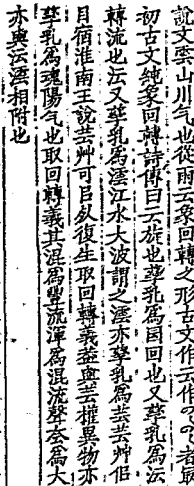 說文雲山川气也從雨云象回轉之形古文作云作𠃉𠃉者最
初古文純象回轉詩傳曰云旋也孳乳爲囩回也又孳乳爲沄
轉流也沄又孳乳爲澐江水大波謂之澐亦孳乳爲芸芸艸佀
目宿淮南王說芸艸可㠯死復生取回轉義葢與芸權異物亦
孳乳爲魂陽气也取回轉義其混爲豐流渾爲混流聲夲爲大
亦與沄澐相附也